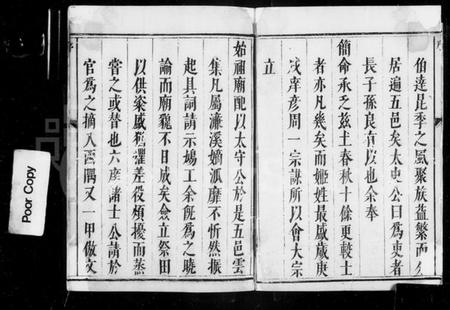 伯逵昆季之風聚族蓋繁而分
居遍五邑矣太史公曰為吏者
長子孫良有以也余奉
簡命承乏茲土春秋十餘更較士
者亦凡幾矣而姬姓最盛歲庚
戌庠彥周一宗謀所以會大宗
立
始祖廟配以太守公於是五邑雲
集凡屬濂溪嫡派靡不忻然振
起具詞請示塲工余旣為之曉
諭而廟貌不日成矣僉立祭田
以供粢盛猶懼差役煩擾而蒸
嘗之或替也六庠諸士公請於
官為之摘入西隅又一甲倣文
序
Poor Copy